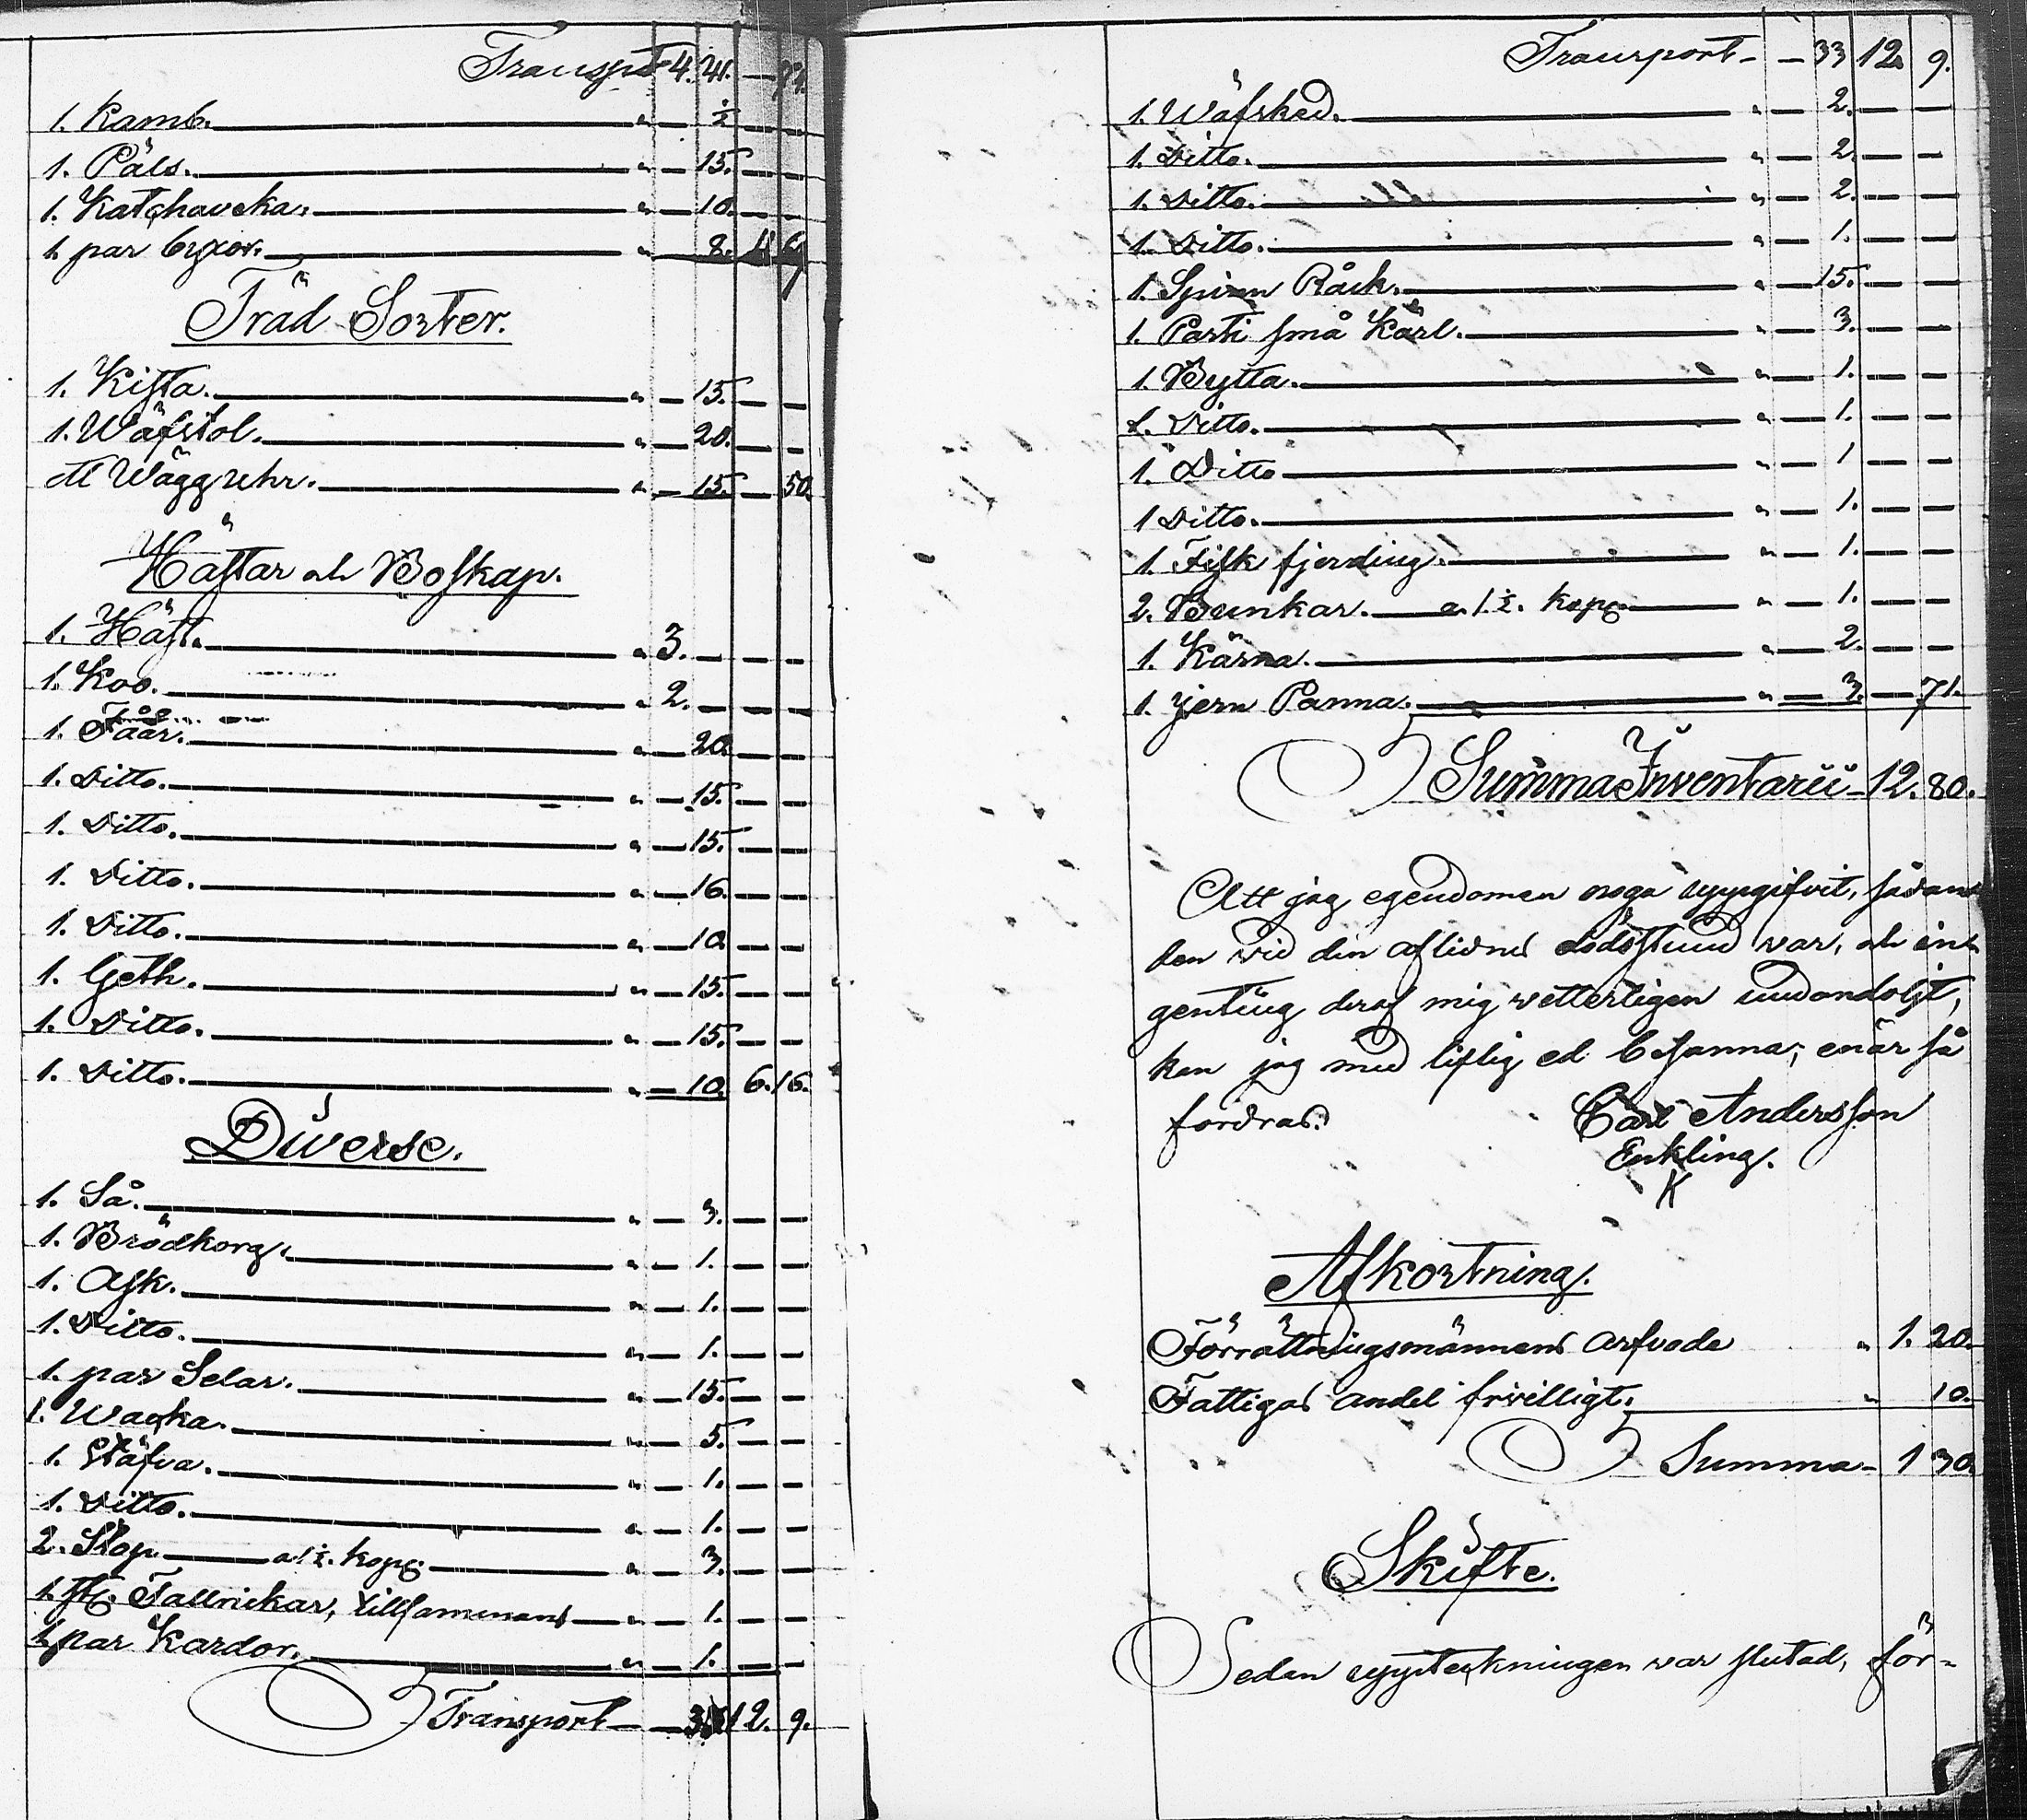 Transport 4. 41. — 94.
1. Kamb. " — ½ — —
1. Päls. " — 15. — —
1. Katchaveka. " — 10. — —
1. par byxor. " — 8. 4 69
Träd Sorter.
1. Kista. " — 15. — —
1. Wäfstol. " — 20. — —
ett Wäggrehr. " — 15. — 50.
Hästar och Boskap.
1. Häst. " 3. — — —
1. Koo. " 2. — — —
1. Fåår. " — 20. — —
1. Ditto. " — 15. — —
1. Ditto. " — 15. — —
1. Ditto. " — 16. — —
1. Ditto. " — 10. — —
1. Geth. " — 15. — —
1. Ditto. " — 15. — —
1. Ditto. " — 10. 6. 16.
Diverse.
1. Så. " — 3. — —
1. Brödkorg. " — 1. — —
1. Ask. " — 1. — —
1. Ditto. " — 1. — —
1. par Selar. " — 15. — —
1. Wagka. " — 5. — —
1. Stäfva. " — 1. — —
1. Ditto. " — 1. — —
2. Stop a 1½. kopr " — 3. — —
1. st. Tallrikar, tillsammans " — 1. — —
1 par Kardor. " — 1. — —
Transport — 33 12. 9.
Transport — 33 12. 9.
1. Wäfsked. " — 2. — —
1. Ditto. " — 2. — —
1. Ditto. " — 2. — —
1. Ditto. " — 1. — —
1. Spinn Råck. " — 15. — —
1. Parti små Kärl. " — 3. — —
1. Bytta. " — 1. — —
1. Ditto. " — 1. — —
1. Ditto " — 1 — —
1 Ditto. " — 1. — —
1. Fisk fjerding. " — 1. — —
2. Bunkar. a 1½. kopr " — 1. — —
1. Kärna. " — 2. — —
1. jern Panna. " — 3. — 71.
Summa Inventarii 12. 80.
Att jag egendomen noga uppgifvit, sådan
den vid din aflidnes dödsstund var, och in-
genting deraf mig vetterligen undandoljt,
kan jag med liflig ed besanna, enär så
fordras.
Carl Andersson
Enkling.
K
Afkortning.
Förrättningsmännens arfvode " 1. 20.
Fattigas andel frivilligt. " 10.
Summa 1 30.
Skifte.
Sedan uppteckningen var slutad, för-